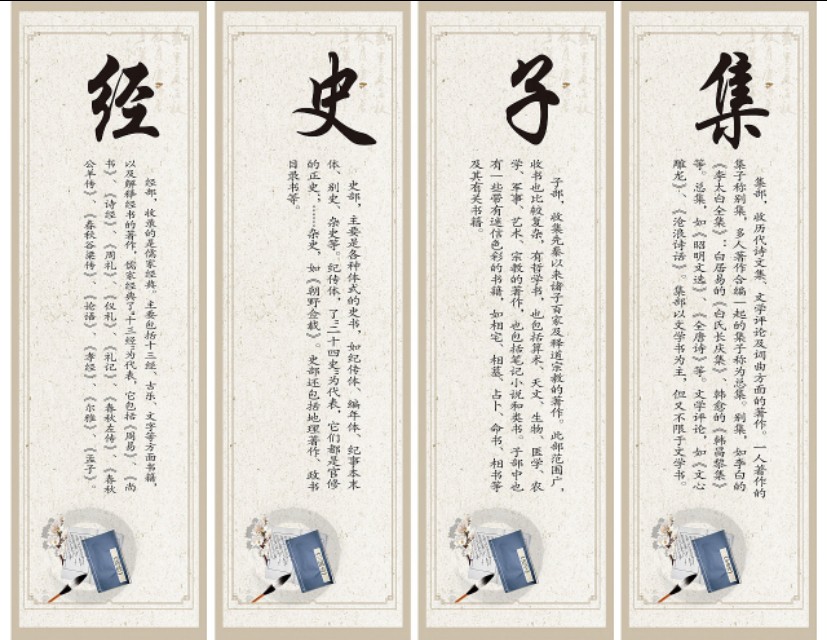 经
经部，收录的是儒家经典。主要包括十三经、古乐、文字等方面书籍，
以及解释经书的著作，儒家经典了“十三经”为代表，它包括《周易》、《尚
书》、《诗经》、《周礼》、《仪礼》、《礼记》、《春秋左传》、《春秋
公羊传》、《春秋谷梁传》、《论语》、《孝经》、《尔雅》、《孟子》。
史
史部，主要是各种体式的史书，如纪传体、编年体、纪事本末
体、别史、杂史等。纪传体，了“二十四史”为代表，它们都是官修
的正史，……杂史，如《朝野佥载》。史部还包括地理著作、政书
目录书等。
子
子部，收集先秦以来诸子百家及释道宗教的著作。此部范围广，
收书也比较复杂，有哲学书，也包括算术、天文、生物、医学、农
学、军事、艺术、宗教的著作，也包括笔记小说和类书。子部中也
有一些带有迷信色彩的书籍，如相宅、相墓、占卜、命书、相书等
及其有关书籍。
集
集部，收历代诗文集、文学评论及词曲方面的著作。一人著作的
集子称别集，多人著作合编一起的集子称为总集。别集，如李白的
《李太白全集》；白居易的《白氏长庆集》、韩愈的《韩昌黎集》
等。总集，如《昭明文选》、《全唐诗》等。文学评论，如《文心
雕龙》、《沧浪诗话》。集部以文学书为主，但又不限于文学书。